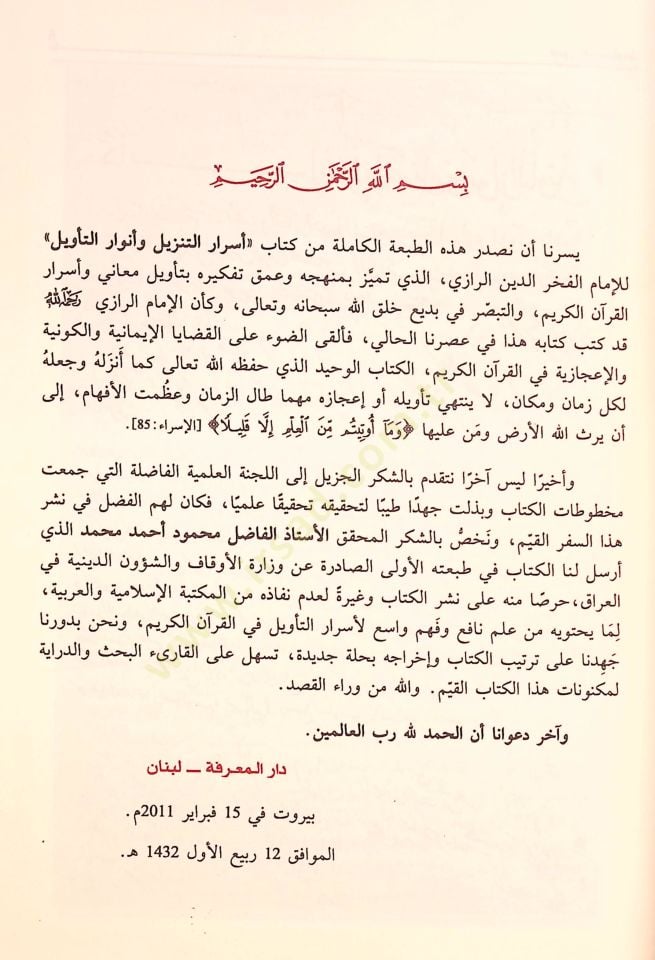 بِسْمِ اللَّهِ الرَّحْمَنِ الرَّحِيمِ
يسرنا أن نصدر هذه الطبعة الكاملة من كتاب «أسرار التنزيل وأنوار التأويل»
للإمام الفخر الدين الرازي، الذي تميَّز بمنهجه وعمق تفكيره بتأويل معاني وأسرار
القرآن الكريم، والتبصّر في بديع خلق الله سبحانه وتعالى، وكأن الإمام الرازي رَحِمَهُ اللَّهُ
قد كتب كتابه هذا في عصرنا الحالي، فألقى الضوء على القضايا الإيمانية والكونية
والإعجازية في القرآن الكريم، الكتاب الوحيد الذي حفظه الله تعالى كما أَنزَلهُ وجعلهُ
لكل زمان ومكان، لا ينتهي تأويله أو إعجازه مهما طال الزمان وعظُمت الأفهام، إلى
أن يرث الله الأرض ومَن عليها ﴿وَمَآ أُوتِيتُم مِّنَ الْعِلْمِ إِلَّا قَلِيلًا﴾ [الإسراء:85].
وأخيرًا ليس آخرًا نتقدم بالشكر الجزيل إلى اللجنة العلمية الفاضلة التي جمعت
مخطوطات الكتاب وبذلت جهدًا طيبًا لتحقيقه تحقيقًا علميًا، فكان لهم الفضل في نشر
هذا السفر القيّم، ونَخصُّ بالشكر المحقق الأستاذ الفاضل محمود أحمد محمد الذي
أرسل لنا الكتاب في طبعته الأولى الصادرة عن وزارة الأوقاف والشؤون الدينية في
العراق،حرصًا منه على نشر الكتاب وغيرةً لعدم نفاذه من المكتبة الإسلامية والعربية،
لِمَا يحتويه من علم نافع وفَهم واسع لأسرار التأويل في القرآن الكريم، ونحن بدورنا
جَهِدنا على ترتيب الكتاب وإخراجه بحلة جديدة، تسهل على القارىء البحث والدراية
لمكنونات هذا الكتاب القيّم. والله من وراء القصد.
وآخر دعوانا أن الحمد لله رب العالمين.
دار المعرفة ــ لبنان
بيروت في 15 فبراير 2011م.
الموافق 12 ربيع الأول 1432 هـ.